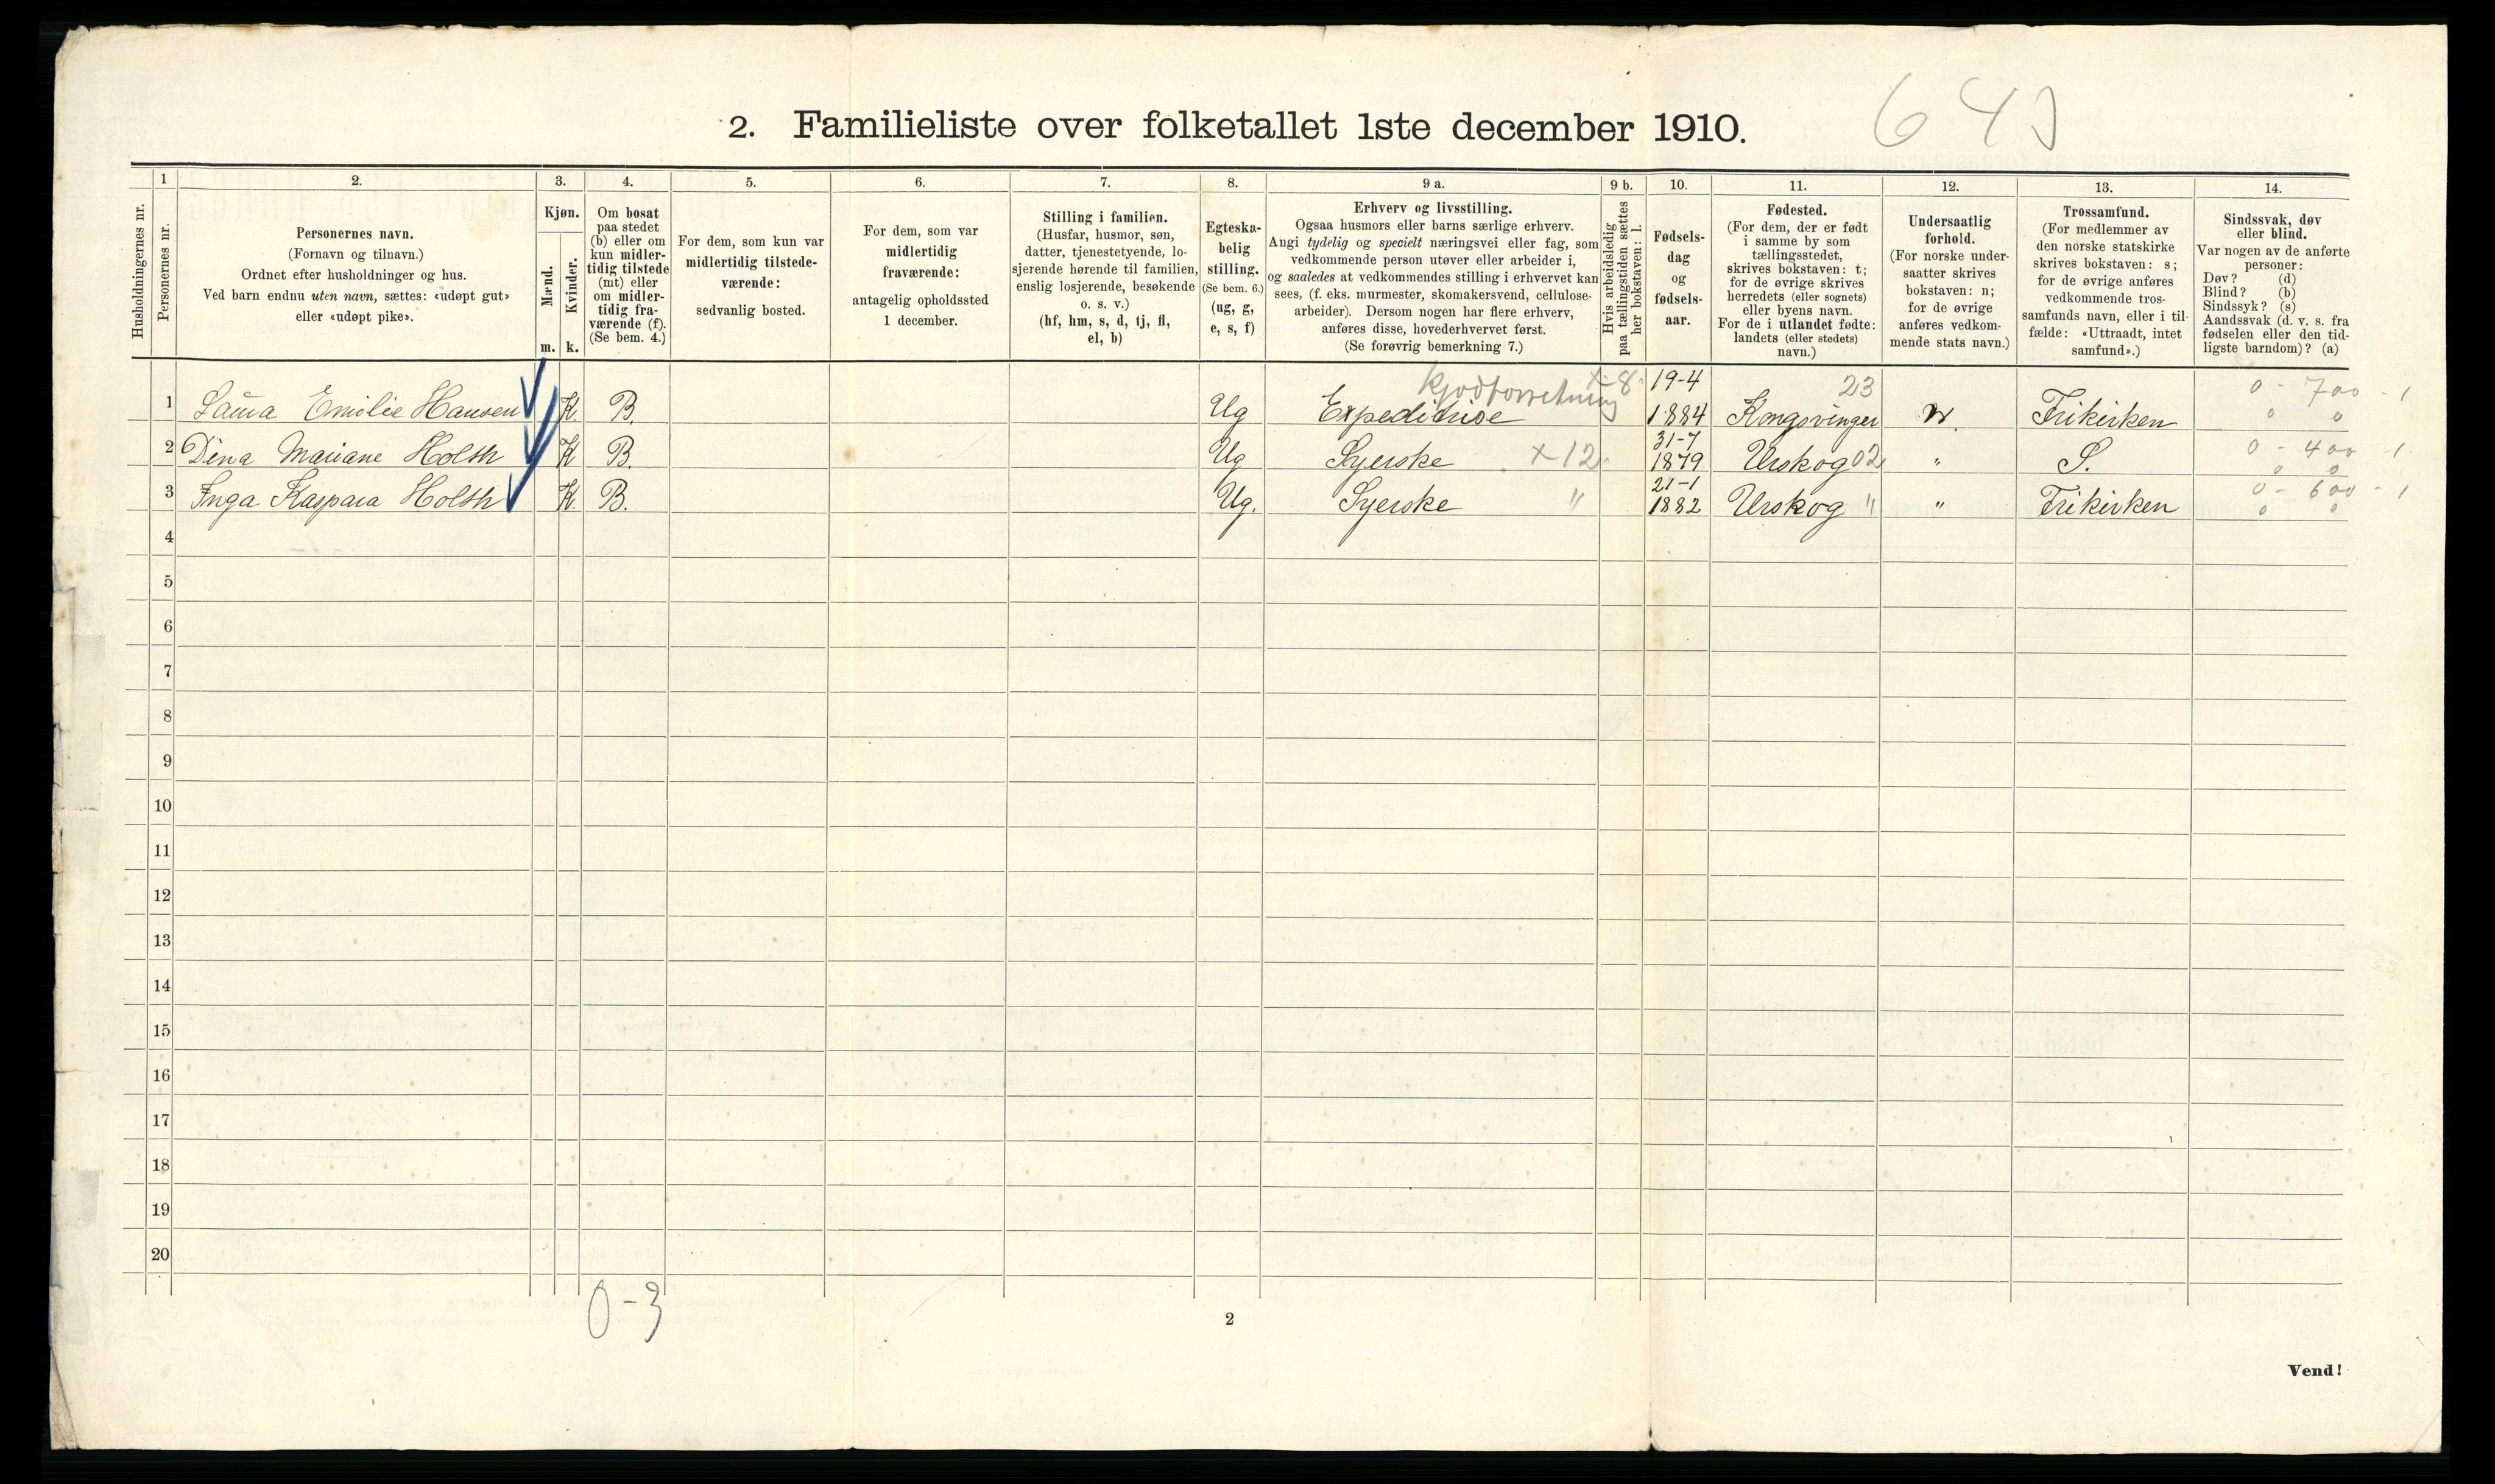 2. Familieliste over folketallet 1ste december 1910.
Husholdningernes nr.
1
Personernes nr.
2.
Personernes navn.
(Fornavn og tilnavn.)
Ordnet efter husholdninger og hus.
Ved barn endnu uten navn, sættes: «udøpt gut»
eller «udøpt pike».
3.
Kjøn.
Mænd.
Kvinder.
m. k.
4.
Om bosat
paa stedet
(b) eller om
kun midler-
tidig tilstede
(mt) eller
om midler-
tidig fra-
værende (f).
(Se bem. 4.)
5.
For dem, som kun var
midlertidig tilstede-
værende:
sedvanlig bosted.
6.
For dem, som var
midlertidig
fraværende:
antagelig opholdssted
1 december.
7.
Stilling i familien.
(Husfar, husmor, søn,
datter, tjenestetyende, lo-
sjerende hørende til familien,
enslig losjerende, besøkende
o. s. v.)
(hf, hm, s, d, tj, fl,
el, b)
8.
Egteska-
belig
stilling.
(Se bem. 6.)
(ug, g,
e, s, f)
9 a.
Erhverv og livsstilling.
Ogsaa husmors eller barns særlige erhverv.
Angi tydelig og specielt næringsvei eller fag, som
vedkommende person utøver eller arbeider i,
og saaledes at vedkommendes stilling i erhvervet kan
sees, (f. eks. murmester, skomakersvend, cellulose-
arbeider). Dersom nogen har flere erhverv,
anføres disse, hovederhvervet først.
(Se forøvrig bemerkning 7.)
9 b.
Hvis arbeidsledig
paa tællingstiden sættes
her bokstaven: l.
10.
Fødsels-
dag
og
fødsels-
aar.
11.
Fødested.
(For dem, der er født
i samme by som
tællingsstedet,
skrives bokstaven: t;
for de øvrige skrives
herredets (eller sognets)
eller byens navn.
For de i utlandet fødte:
landets (eller stedets)
navn.)
12.
Undersaatlig
forhold.
(For norske under-
saatter skrives
bokstaven: n;
for de øvrige
anføres vedkom-
mende stats navn.)
13.
Trossamfund.
(For medlemmer av
den norske statskirke
skrives bokstaven: s;
for de øvrige anføres
vedkommende tros-
samfunds navn, eller i til-
fælde: «Uttraadt, intet
samfund».)
14.
Sindssvak, døv
eller blind.
Var nogen av de anførte
personer:
Døv? (d)
Blind? (b)
Sindssyk? (s)
Aandssvak (d. v. s. fra
fødselen eller den tid-
ligste barndom)? (a)
kjødforretning x-8 19-4 23 0 - 700 - 1
1 Laura Emilie Hansen K. B. Ug Expeditrise 1884 Kongsvinger N. Frikirken 0 0
31-7 0 - 400 - 1
2 Dina Mariane Holth K B. Ug Syerske x 12 1879 Urskog 02 " S. 0 0
21-1 0 - 600 - 1
3 Inga Kaspara Holth K. B. Ug. Syerske " 1882 Urskog " " Frikirken 0 0
4
5
6
7
8
9
10
11
12
13
14
15
16
17
18
19
20
0-3
2
Vend!